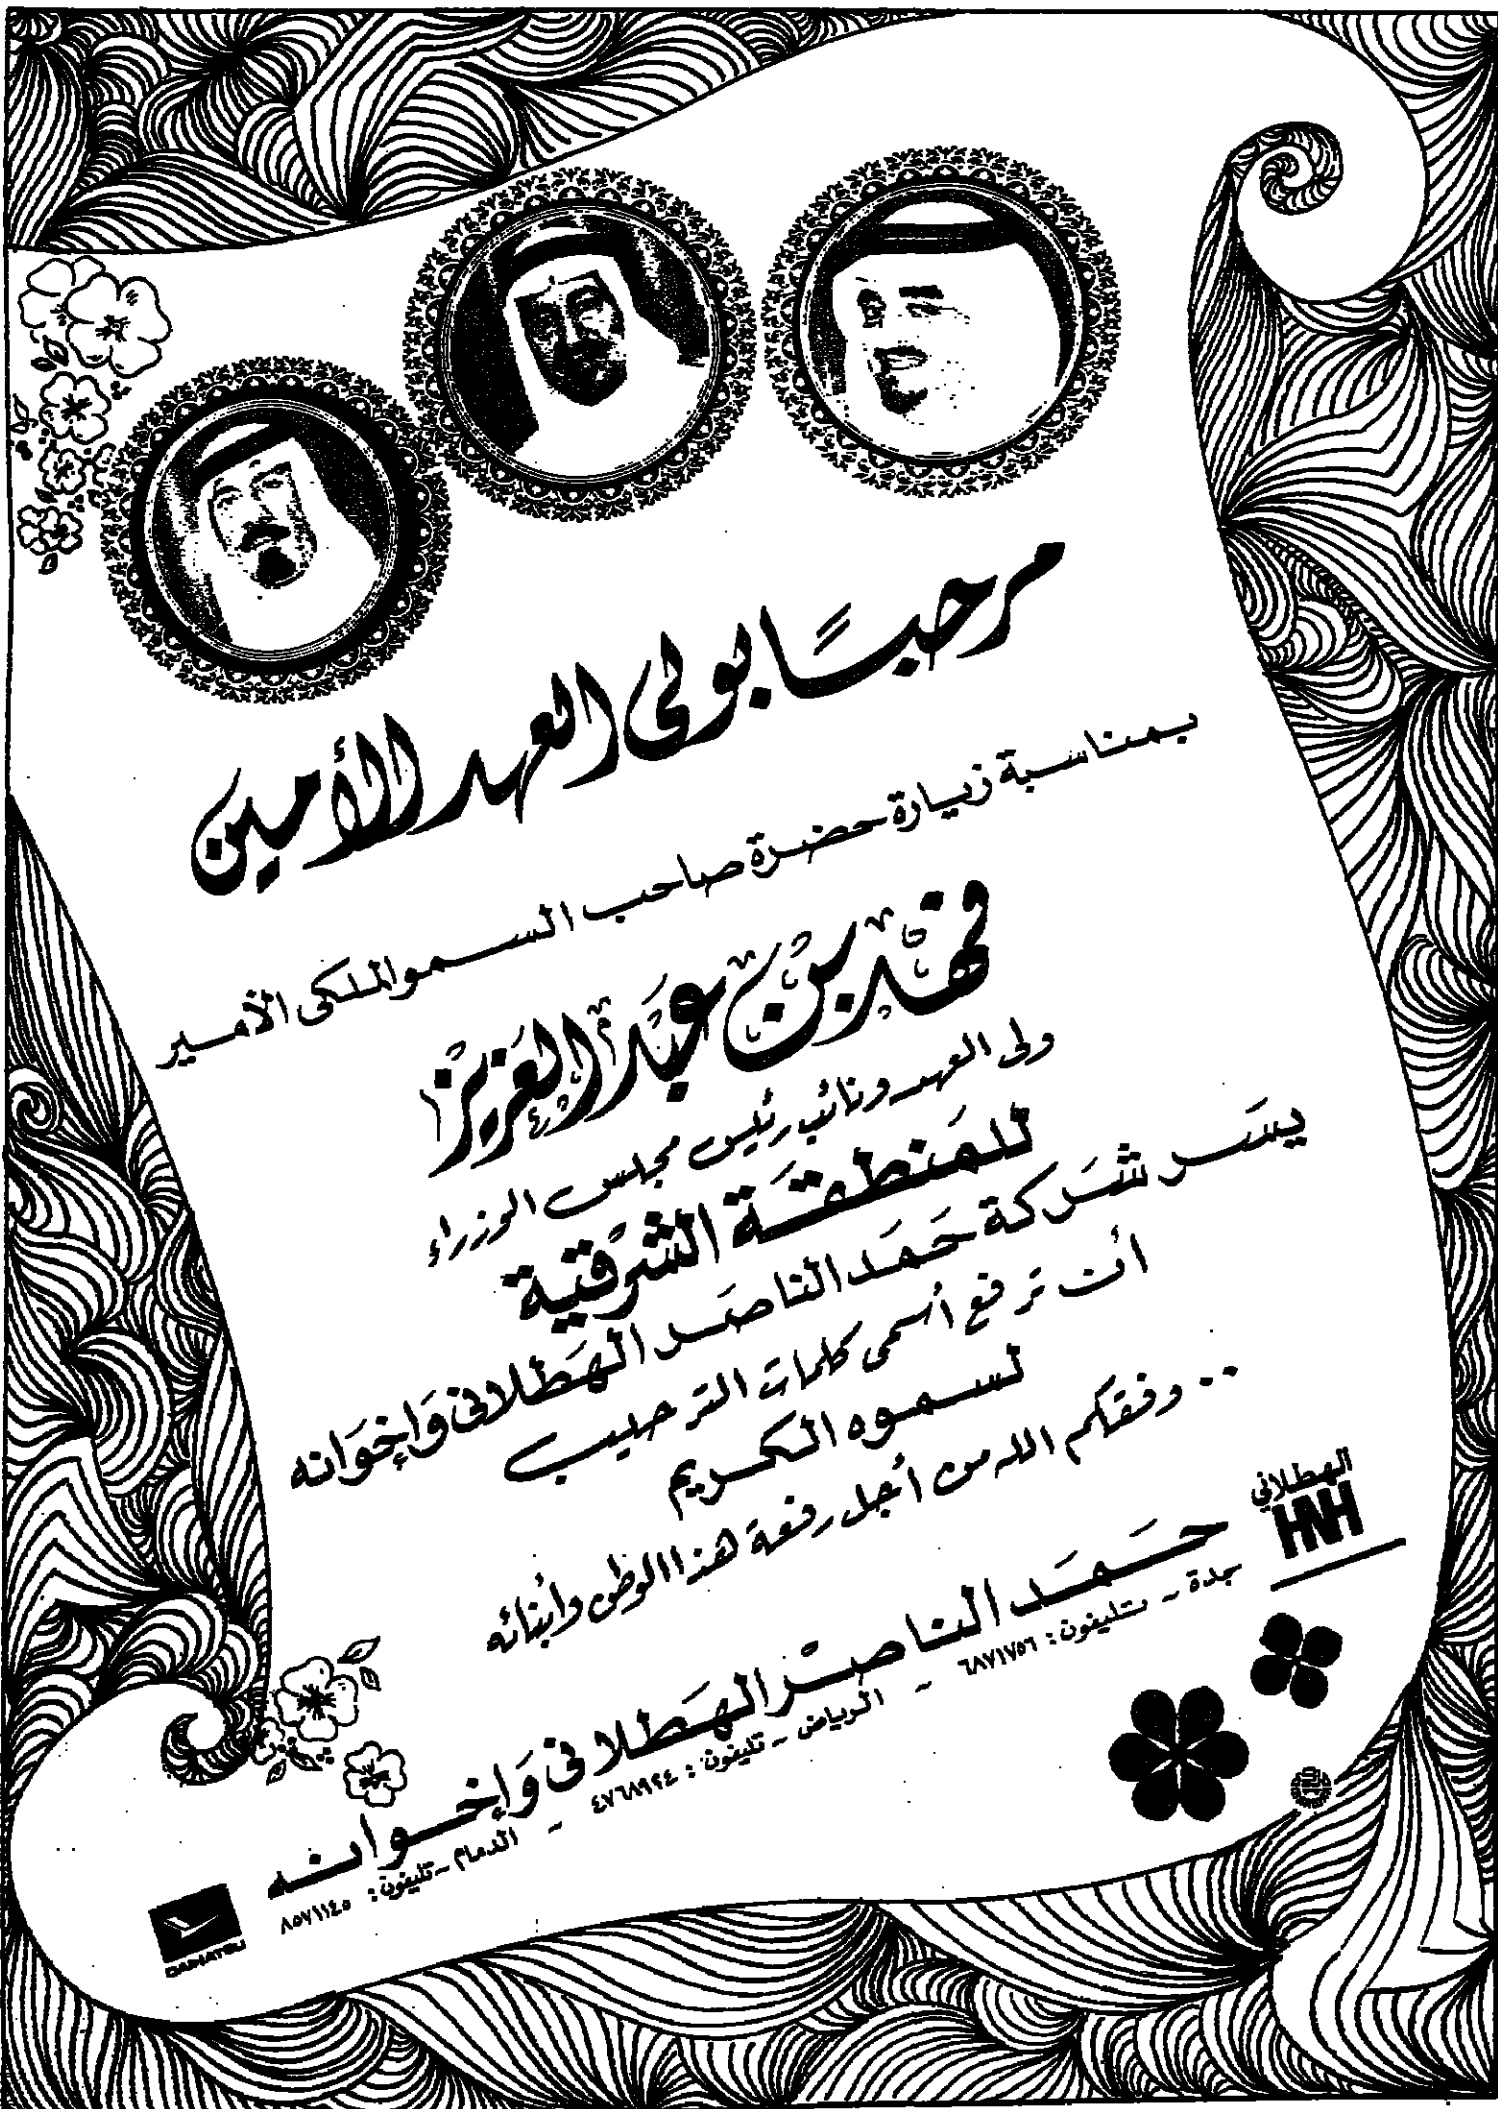 مرحبًا بولى العهد الأمين
بمناسبة زيارة حضرة صاحب السمو الملكى الأمير
فهد بن عبد العزيز
ولى العهد ونائب رئيس مجلس الوزراء
للمنطقة الشرقية
يسر شركة حمد الناصر الهطلانى وإخوانه
أن ترفع أسمى كلمات الترحيب
لسموه الكريم
.. وفقكم الله من أجل رفعة هذا الوطن وأبنائه
الهطلاني
HNH
حمد الناصر الهطلانى وإخوانه
جدة - تليفون: ٦٨٧١٧٥٦ - الرياض - تليفون: ٤٧٦٨٩٢٤ - الدمام - تليفون: ٨٥٧١١٤٥
DAIHATSU